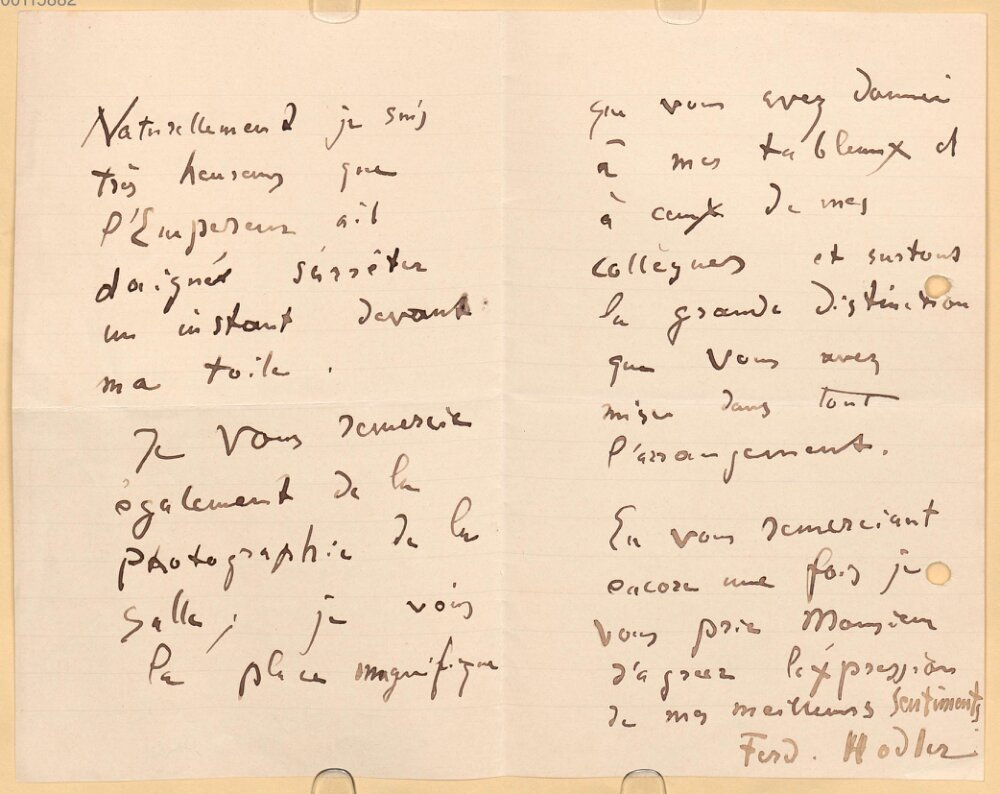 00115882
Naturellement je suis
très heureux que
l'Empereur ait
daigné s'arrêter
un instant devant
ma toile.
Je vous remercie
également de la
photographie de la
salle; je vois
la place magnifique
que vous avez donnée
à mes tableaux et
à ceux de mes
collègues et surtout
la grande distinction
que vous avez
mise dans tout
l'arrangement.
En vous remerciant
encore une fois je
vous prie Monsieur
d'agréer l'éxpression
de mes meilleurs sentiments
Ferd. Hodler